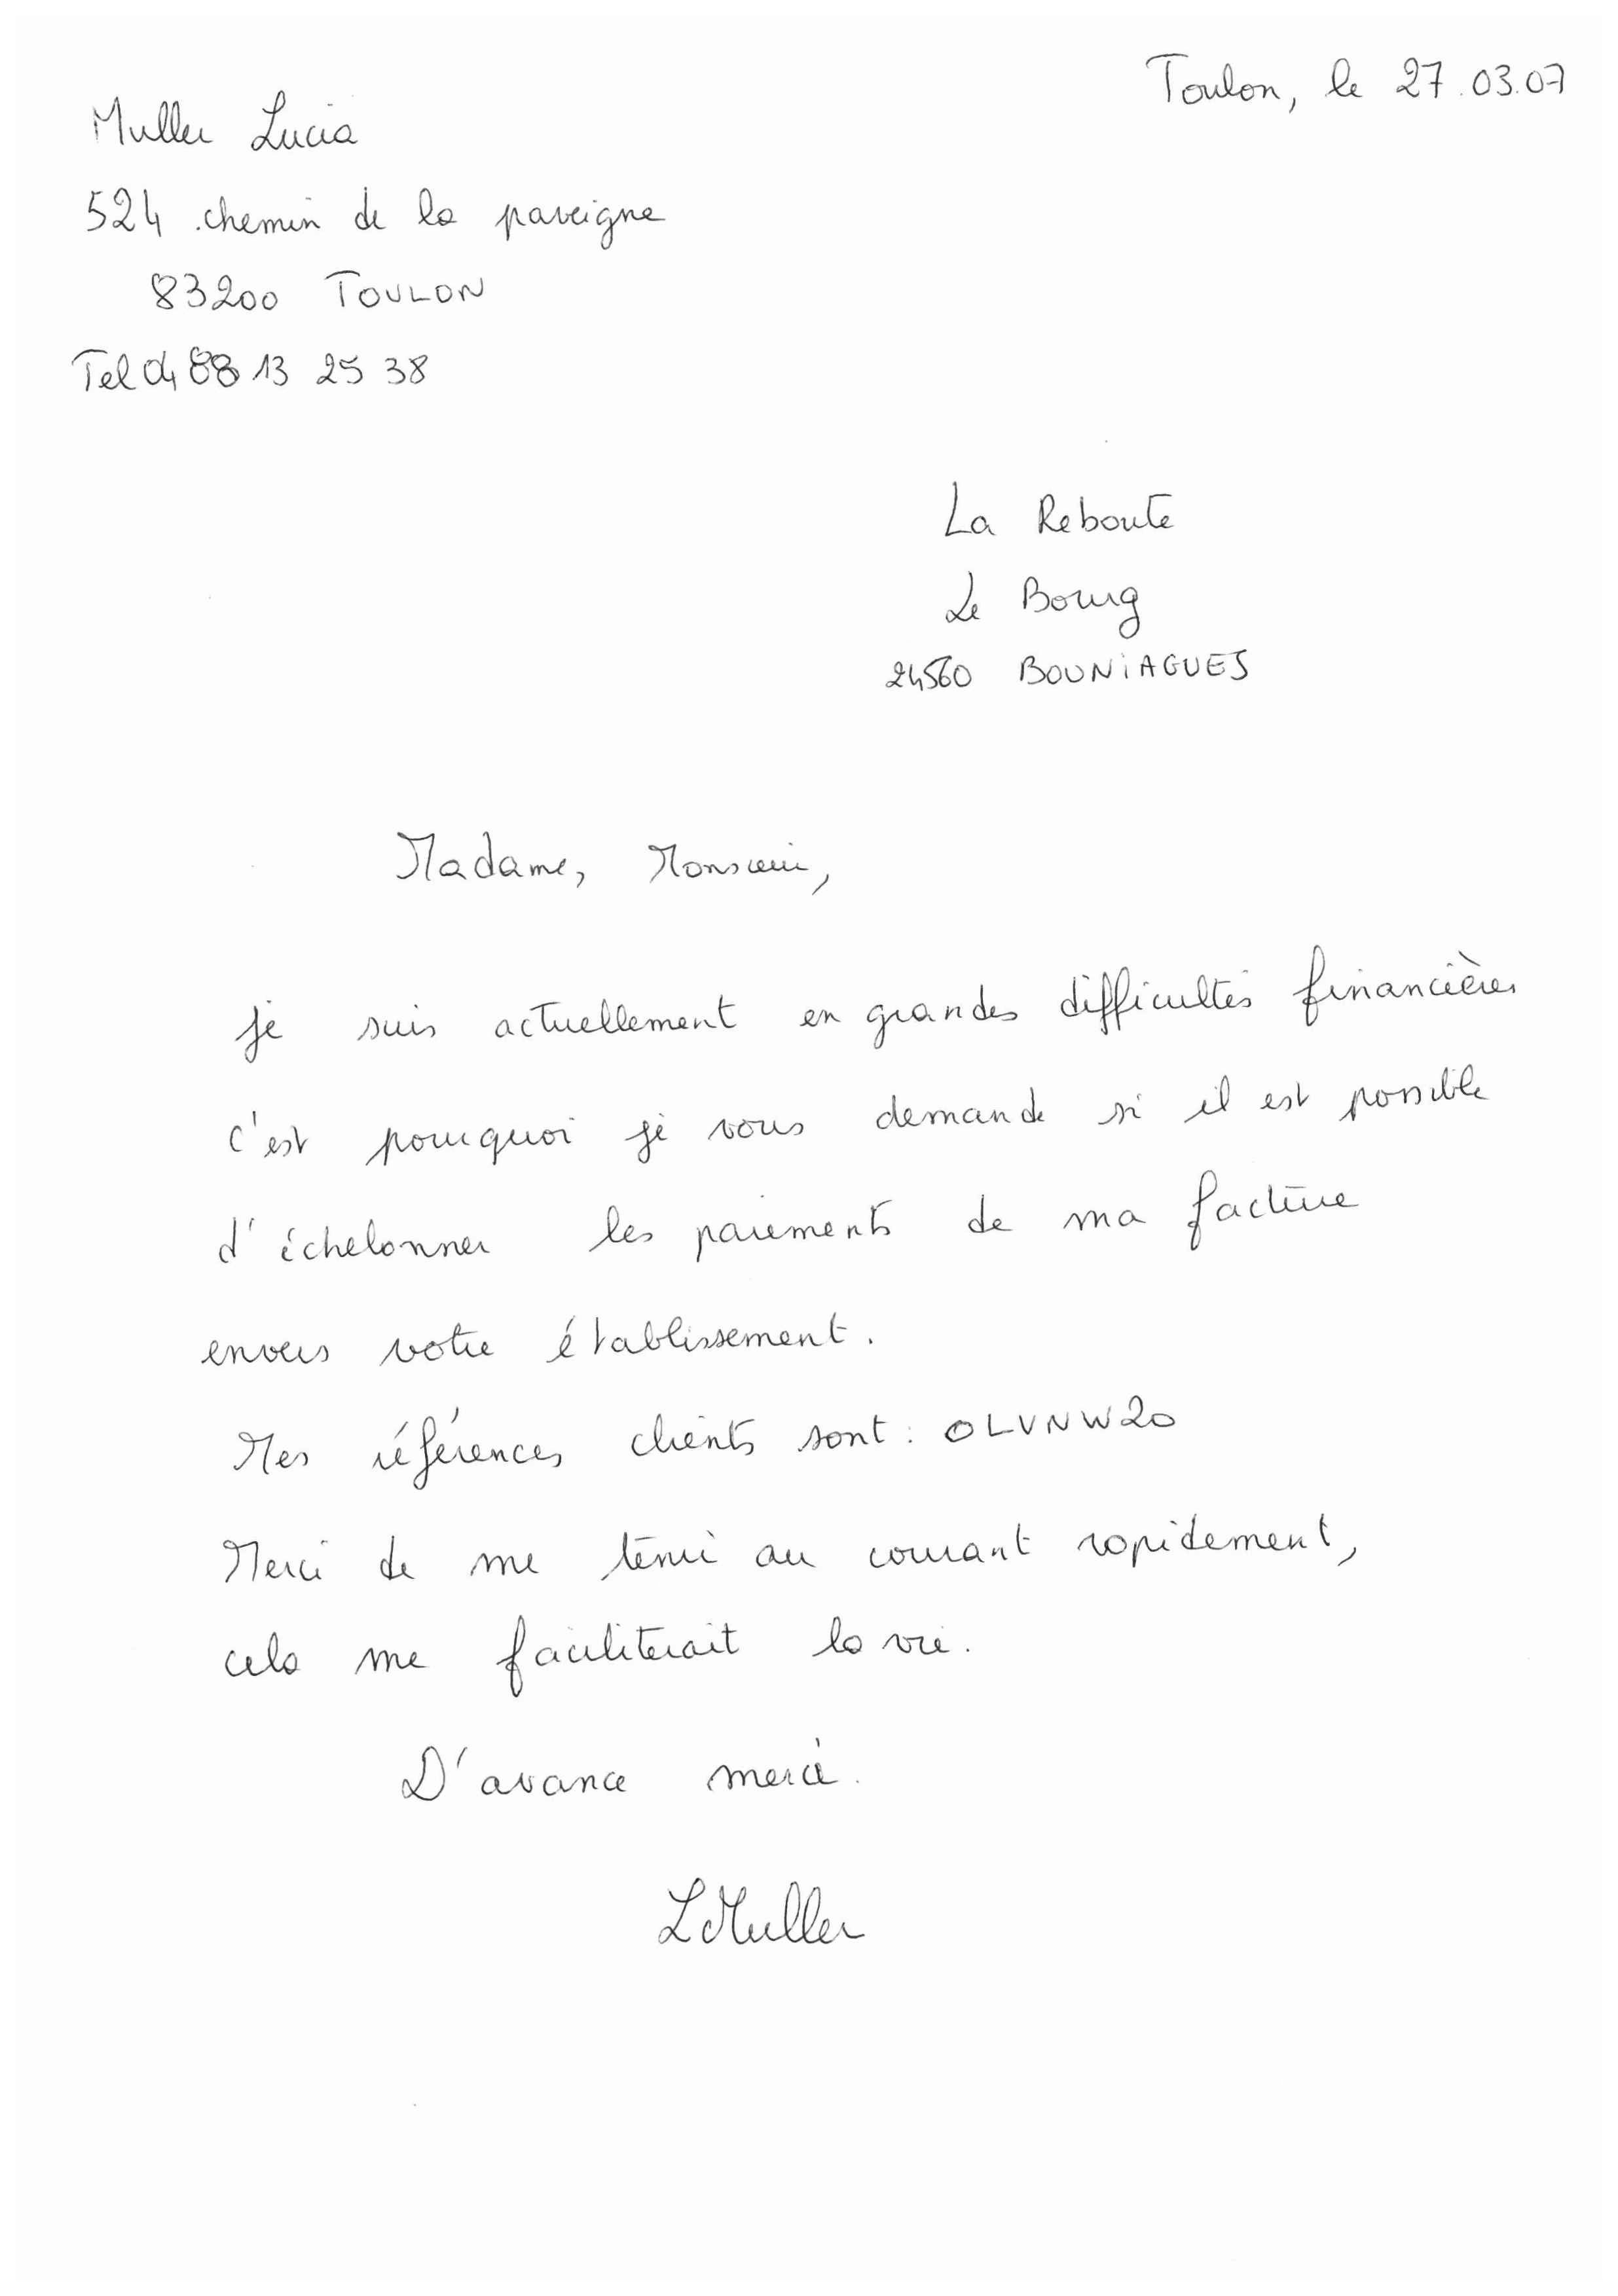 Toulon, le 27.03.07
Muller Lucia
524 chemin de la paveigne
83200 TOULON
Tel 04 88 13 25 38
La Reboute
Le Bourg
24560 BOUNIAGUES
Madame, Monsieur,
je suis actuellement en grandes difficultés financières
c'est pourquoi je vous demande si il est possible
d'échelonner les paiements de ma facture
envers votre établissement.
Mes références clients sont : OLVNW20
Merci de me tenir au courant rapidement,
cela me faciliterait la vie.
D'avance merci.
LMuller